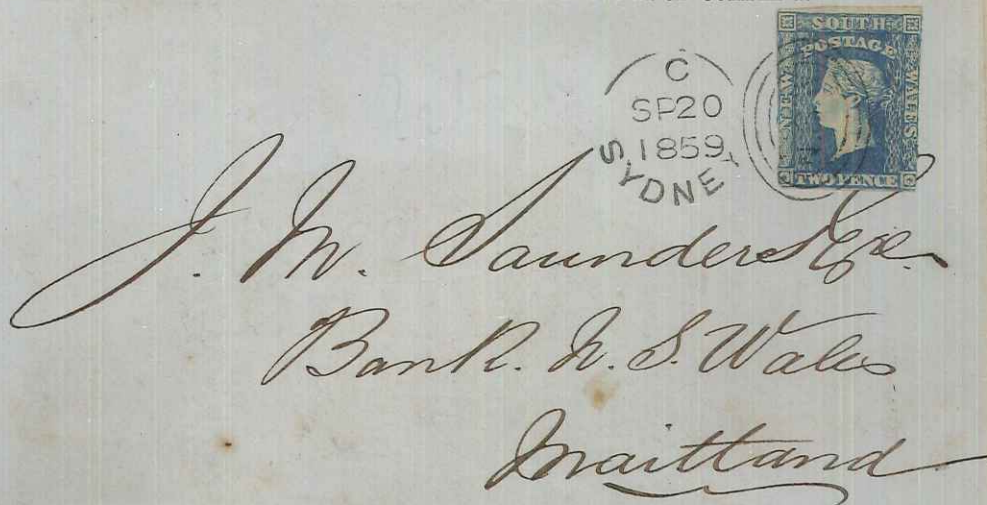 C
SP20
1859
SYDNEY
SOUTH
POSTAGE
NEW
WALES
TWO PENCE
J. M. Saunders Esqre.
Bank. N. S. Wales
Maitland